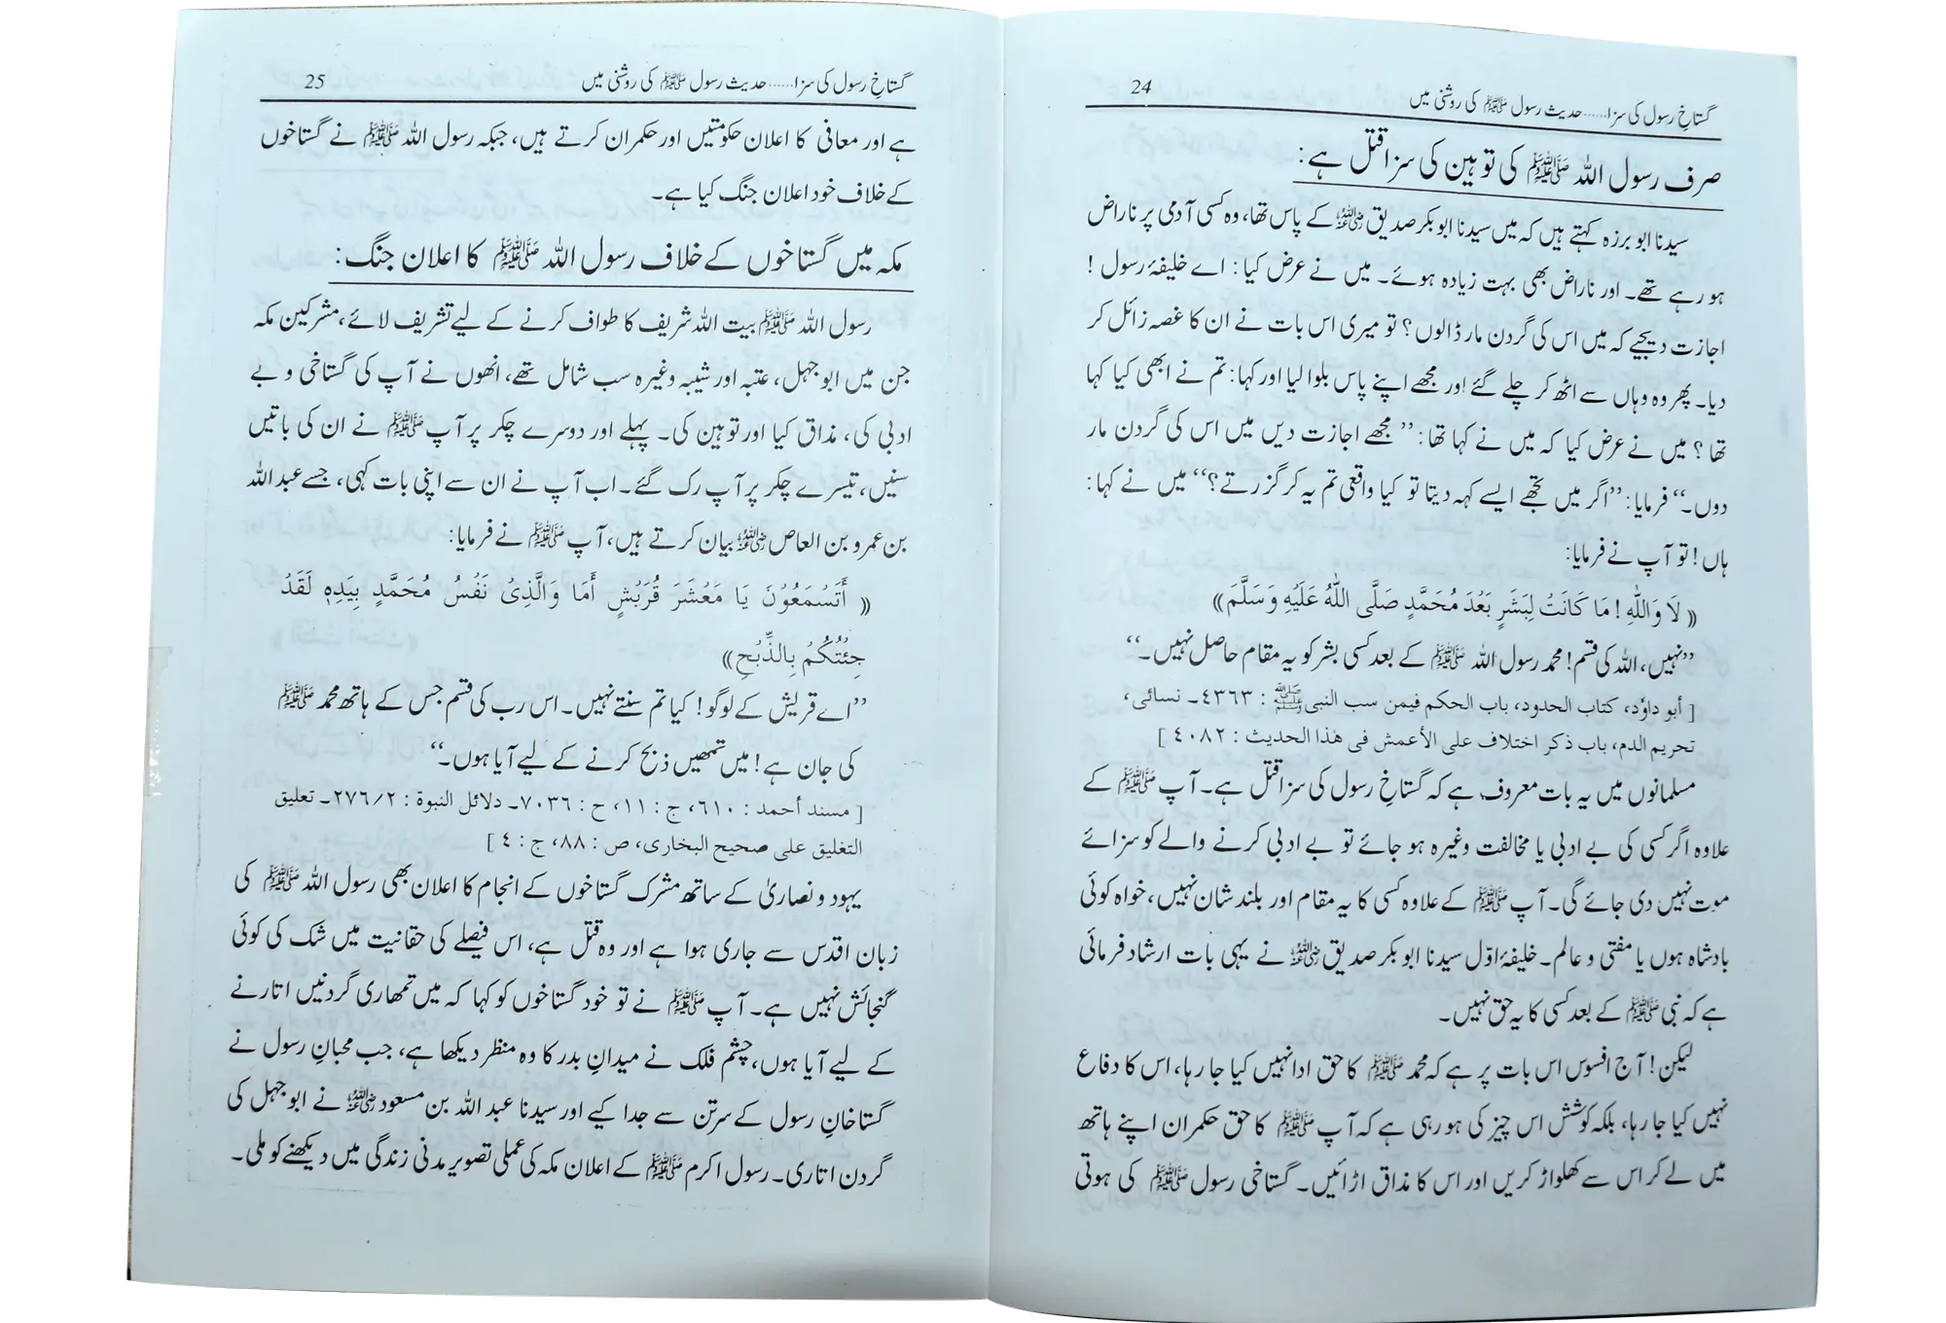 24
گستاخِ رسول کی سزا......حدیث رسول ﷺ کی روشنی میں
صرف رسول اللہ ﷺ کی توہین کی سزا قتل ہے:
سیدنا ابو برزہ کہتے ہیں کہ میں سیدنا ابوبکر صدیق رضی اللہ عنہ کے پاس تھا، وہ کسی آدمی پر ناراض
ہو رہے تھے۔ اور ناراض بھی بہت زیادہ ہوئے۔ میں نے عرض کیا: اے خلیفۂ رسول !
اجازت دیجیے کہ میں اس کی گردن مار ڈالوں؟ تو میری اس بات نے ان کا غصہ زائل کر
دیا۔ پھر وہ وہاں سے اٹھ کر چلے گئے اور مجھے اپنے پاس بلوا لیا اور کہا: تم نے ابھی کیا کہا
تھا؟ میں نے عرض کیا کہ میں نے کہا تھا: ’’مجھے اجازت دیں میں اس کی گردن مار
دوں۔‘‘ فرمایا: ’’اگر میں تجھے ایسے کہہ دیتا تو کیا واقعی تم یہ کر گزرتے؟‘‘ میں نے کہا:
ہاں! تو آپ نے فرمایا:
(( لَا وَاللّٰهِ! مَا كَانَتْ لِبَشَرٍ بَعْدَ مُحَمَّدٍ صَلَّى اللّٰهُ عَلَيْهِ وَسَلَّمَ))
’’نہیں، اللہ کی قسم! محمد رسول اللہ ﷺ کے بعد کسی بشر کو یہ مقام حاصل نہیں۔‘‘
[ أبو داوٗد، كتاب الحدود، باب الحكم فيمن سب النبى ﷺ : ٤٣٦٣۔ نسائی،
تحريم الدم، باب ذكر اختلاف على الأعمش فى هذا الحديث : ٤٠٨٢ ]
مسلمانوں میں یہ بات معروف ہے کہ گستاخِ رسول کی سزا قتل ہے۔ آپ ﷺ کے
علاوہ اگر کسی کی بے ادبی یا مخالفت وغیرہ ہو جائے تو بے ادبی کرنے والے کو سزائے
موت نہیں دی جائے گی۔ آپ ﷺ کے علاوہ کسی کا یہ مقام اور بلند شان نہیں، خواہ کوئی
بادشاہ ہوں یا مفتی و عالم۔ خلیفۂ اوّل سیدنا ابوبکر صدیق رضی اللہ عنہ نے یہی بات ارشاد فرمائی
ہے کہ نبی ﷺ کے بعد کسی کا یہ حق نہیں۔
لیکن! آج افسوس اس بات پر ہے کہ محمد ﷺ کا حق ادا نہیں کیا جا رہا، اس کا دفاع
نہیں کیا جا رہا، بلکہ کوشش اس چیز کی ہو رہی ہے کہ آپ ﷺ کا حق حکمران اپنے ہاتھ
میں لے کر اس سے کھلواڑ کریں اور اس کا مذاق اڑائیں۔ گستاخی رسول ﷺ کی ہوتی
25
گستاخِ رسول کی سزا......حدیث رسول ﷺ کی روشنی میں
ہے اور معافی کا اعلان حکومتیں اور حکمران کرتے ہیں، جبکہ رسول اللہ ﷺ نے گستاخوں
کے خلاف خود اعلان جنگ کیا ہے۔
مکہ میں گستاخوں کے خلاف رسول اللہ ﷺ کا اعلان جنگ:
رسول اللہ ﷺ بیت اللہ شریف کا طواف کرنے کے لیے تشریف لائے، مشرکین مکہ
جن میں ابوجہل، عتبہ اور شیبہ وغیرہ سب شامل تھے، انھوں نے آپ کی گستاخی و بے
ادبی کی، مذاق کیا اور توہین کی۔ پہلے اور دوسرے چکر پر آپ ﷺ نے ان کی باتیں
سنیں، تیسرے چکر پر آپ رک گئے۔ اب آپ نے ان سے اپنی بات کہی، جسے عبداللہ
بن عمرو بن العاص رضی اللہ عنہ بیان کرتے ہیں، آپ ﷺ نے فرمایا:
(( أَتَسْمَعُوْنَ يَا مَعْشَرَ قُرَيْشٍ أَمَا وَالَّذِىْ نَفْسُ مُحَمَّدٍ بِيَدِهٖ لَقَدْ
جِئْتُكُمْ بِالذَّبْحِ))
’’اے قریش کے لوگو! کیا تم سنتے نہیں۔ اس رب کی قسم جس کے ہاتھ محمد ﷺ
کی جان ہے! میں تمھیں ذبح کرنے کے لیے آیا ہوں۔‘‘
[ مسند أحمد : ٦١٠، ج : ١١، ح : ٧٠٣٦۔ دلائل النبوة : ٢٧٦/٢۔ تعليق
التغليق على صحيح البخارى، ص : ٨٨، ج : ٤ ]
یہود و نصاریٰ کے ساتھ مشرک گستاخوں کے انجام کا اعلان بھی رسول اللہ ﷺ کی
زبان اقدس سے جاری ہوا ہے اور وہ قتل ہے، اس فیصلے کی حقانیت میں شک کی کوئی
گنجائش نہیں ہے۔ آپ ﷺ نے تو خود گستاخوں کو کہا کہ میں تمھاری گردنیں اتارنے
کے لیے آیا ہوں، چشم فلک نے میدانِ بدر کا وہ منظر دیکھا ہے، جب محبانِ رسول نے
گستاخانِ رسول کے سر تن سے جدا کیے اور سیدنا عبداللہ بن مسعود رضی اللہ عنہ نے ابوجہل کی
گردن اتاری۔ رسول اکرم ﷺ کے اعلان مکہ کی عملی تصویر مدنی زندگی میں دیکھنے کو ملی۔